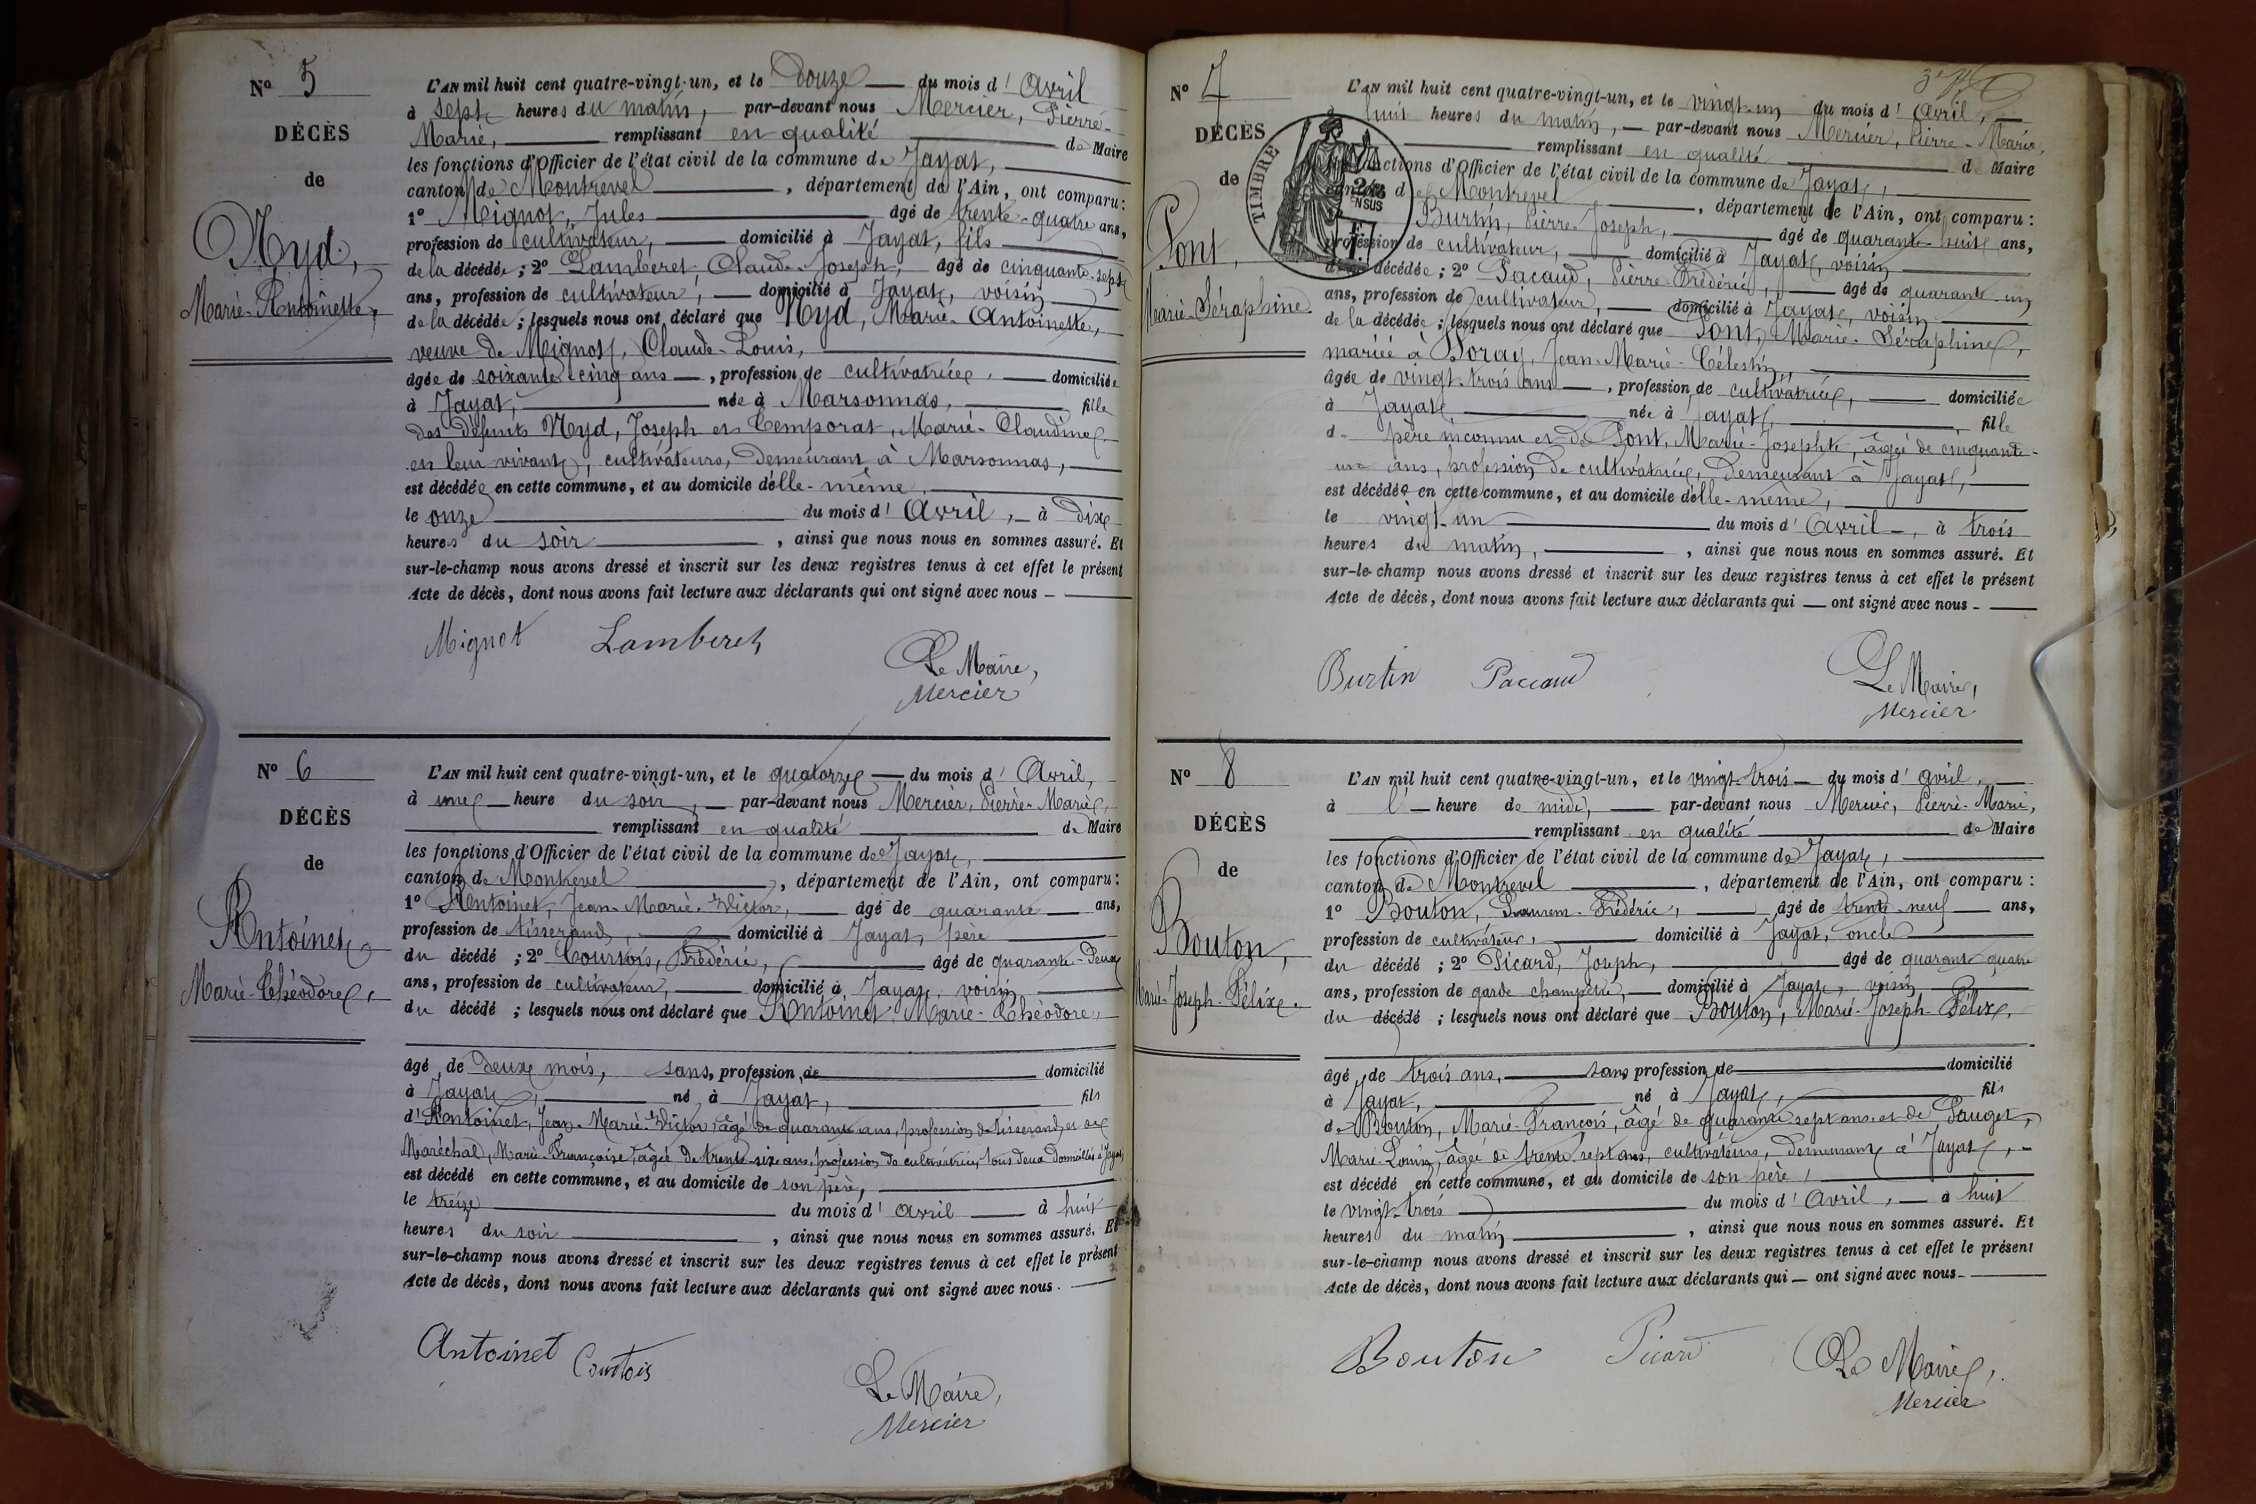 Nº 5
DÉCÈS
de
Nyd,
Marie-Antoinette,
L'AN mil huit cent quatre-vingt-un, et le Douze du mois d'Avril
à sept heures du matin, par-devant nous Mercier, Pierre-
Marie, remplissant en qualité de Maire
les fonctions d'Officier de l'état civil de la commune de Jayat,
canton de Montrevel, département de l'Ain, ont comparu:
1º Mignot, Jules âgé de trente-quatre ans,
profession de cultivateur, domicilié à Jayat, fils
de la décédée; 2º Lamberet, Claude-Joseph, âgé de cinquante-sept
ans, profession de cultivateur, domicilié à Jayat, voisin
de la décédée; lesquels nous ont déclaré que Nyd, Marie-Antoinette,
veuve de Mignot, Claude-Louis,
âgée de soixante-cinq ans, profession de cultivatrice, domiciliée
à Jayat, née à Marsonnas, fille
des défunts Nyd, Joseph et Temporat, Marie-Claudine
en leur vivant, cultivateurs, demeurant à Marsonnas,
est décédée en cette commune, et au domicile d'elle-même,
le onze du mois d'Avril, à dix
heures du soir, ainsi que nous nous en sommes assuré. Et
sur-le-champ nous avons dressé et inscrit sur les deux registres tenus à cet effet le présent
Acte de décès, dont nous avons fait lecture aux déclarants qui ont signé avec nous
Mignot Lamberet
Le Maire,
Mercier
Nº 6
DÉCÈS
de
Antoinet
Marie-Théodore,
L'AN mil huit cent quatre-vingt-un, et le quatorze du mois d'Avril,
à une heure du soir, par-devant nous Mercier, Pierre-Marie,
remplissant en qualité de Maire
les fonctions d'Officier de l'état civil de la commune de Jayat,
canton de Montrevel, département de l'Ain, ont comparu:
1º Antoinet, Jean-Marie-Victor, âgé de quarante ans,
profession de tisserand, domicilié à Jayat, père
du décédé; 2º Courtois, Frédéric, âgé de quarante-deux
ans, profession de cultivateur, domicilié à Jayat, voisin
du décédé; lesquels nous ont déclaré que Antoinet Marie-Théodore,
âgé de deux mois, sans, profession de domicilié
à Jayat, né à Jayat, fils
d'Antoinet, Jean-Marie-Victor, âgé de quarante ans, profession de tisserand, et de
Maréchal, Marie-Françoise, âgée de trente-six ans, profession de cultivatrice, tous deux domiciliés à Jayat,
est décédé en cette commune, et au domicile de son père,
le treize du mois d'avril à huit
heures du soir, ainsi que nous nous en sommes assuré. Et
sur-le-champ nous avons dressé et inscrit sur les deux registres tenus à cet effet le présent
Acte de décès, dont nous avons fait lecture aux déclarants qui ont signé avec nous.
Antoinet Courtois
Le Maire,
Mercier
Nº 7
DÉCÈS
de
Pont,
Marie-Séraphine.
TIMBRE
L'AN mil huit cent quatre-vingt-un, et le vingt-un du mois d'Avril,
huit heures du matin, par-devant nous Mercier, Pierre-Marie,
remplissant en qualité de Maire
fonctions d'Officier de l'état civil de la commune de Jayat,
canton de Montrevel, département de l'Ain, ont comparu:
Burtin, Pierre-Joseph, âgé de quarante-huit ans,
profession de cultivateur, domicilié à Jayat, voisin
décédée; 2º Pacaud, Pierre-Frédéric, âgé de quarante-un
ans, profession de cultivateur, domicilié à Jayat, voisin
de la décédée; lesquels nous ont déclaré que Pont, Marie-Séraphine,
mariée à Boray, Jean-Marie-Célestin,
âgée de vingt-trois ans, profession de cultivatrice, domiciliée
à Jayat née à Jayat, fille
de père inconnu et de Pont, Marie-Josephte, âgée de cinquante-
un ans, profession de cultivatrice, demeurant à Jayat,
est décédée en cette commune, et au domicile d'elle-même,
le vingt-un du mois d'Avril, à trois
heures du matin, ainsi que nous nous en sommes assuré. Et
sur-le-champ nous avons dressé et inscrit sur les deux registres tenus à cet effet le présent
Acte de décès, dont nous avons fait lecture aux déclarants qui ont signé avec nous
Burtin Paccaud
Le Maire,
Mercier
Nº 8
DÉCÈS
de
Bouton,
Marie-Joseph-Félix.
L'AN mil huit cent quatre-vingt-un, et le vingt-trois du mois d'avril,
à l'heure de midi, par-devant nous Mercier, Pierre-Marie,
remplissant en qualité de Maire
les fonctions d'Officier de l'état civil de la commune de Jayat,
canton de Montrevel, département de l'Ain, ont comparu:
1º Bouton, Laurent-Frédéric, âgé de trente-neuf ans,
profession de cultivateur, domicilié à Jayat, oncle
du décédé; 2º Picard, Joseph, âgé de quarante quatre
ans, profession de garde champêtre, domicilié à Jayat, voisin
du décédé; lesquels nous ont déclaré que Bouton, Marie-Joseph-Félix,
âgé de trois ans, sans profession de domicilié
à Jayat, né à Jayat, fils
de Bouton, Marie-François, âgé de quarante sept ans et de Pauget,
Marie-Louise, âgée de trente-sept ans, cultivateurs, demeurant à Jayat,
est décédé en cette commune, et au domicile de son père,
le vingt-trois du mois d'Avril, à huit
heures du matin, ainsi que nous nous en sommes assuré. Et
sur-le-champ nous avons dressé et inscrit sur les deux registres tenus à cet effet le présent
Acte de décès, dont nous avons fait lecture aux déclarants qui ont signé avec nous
Bouton Picard
Le Maire,
Mercier